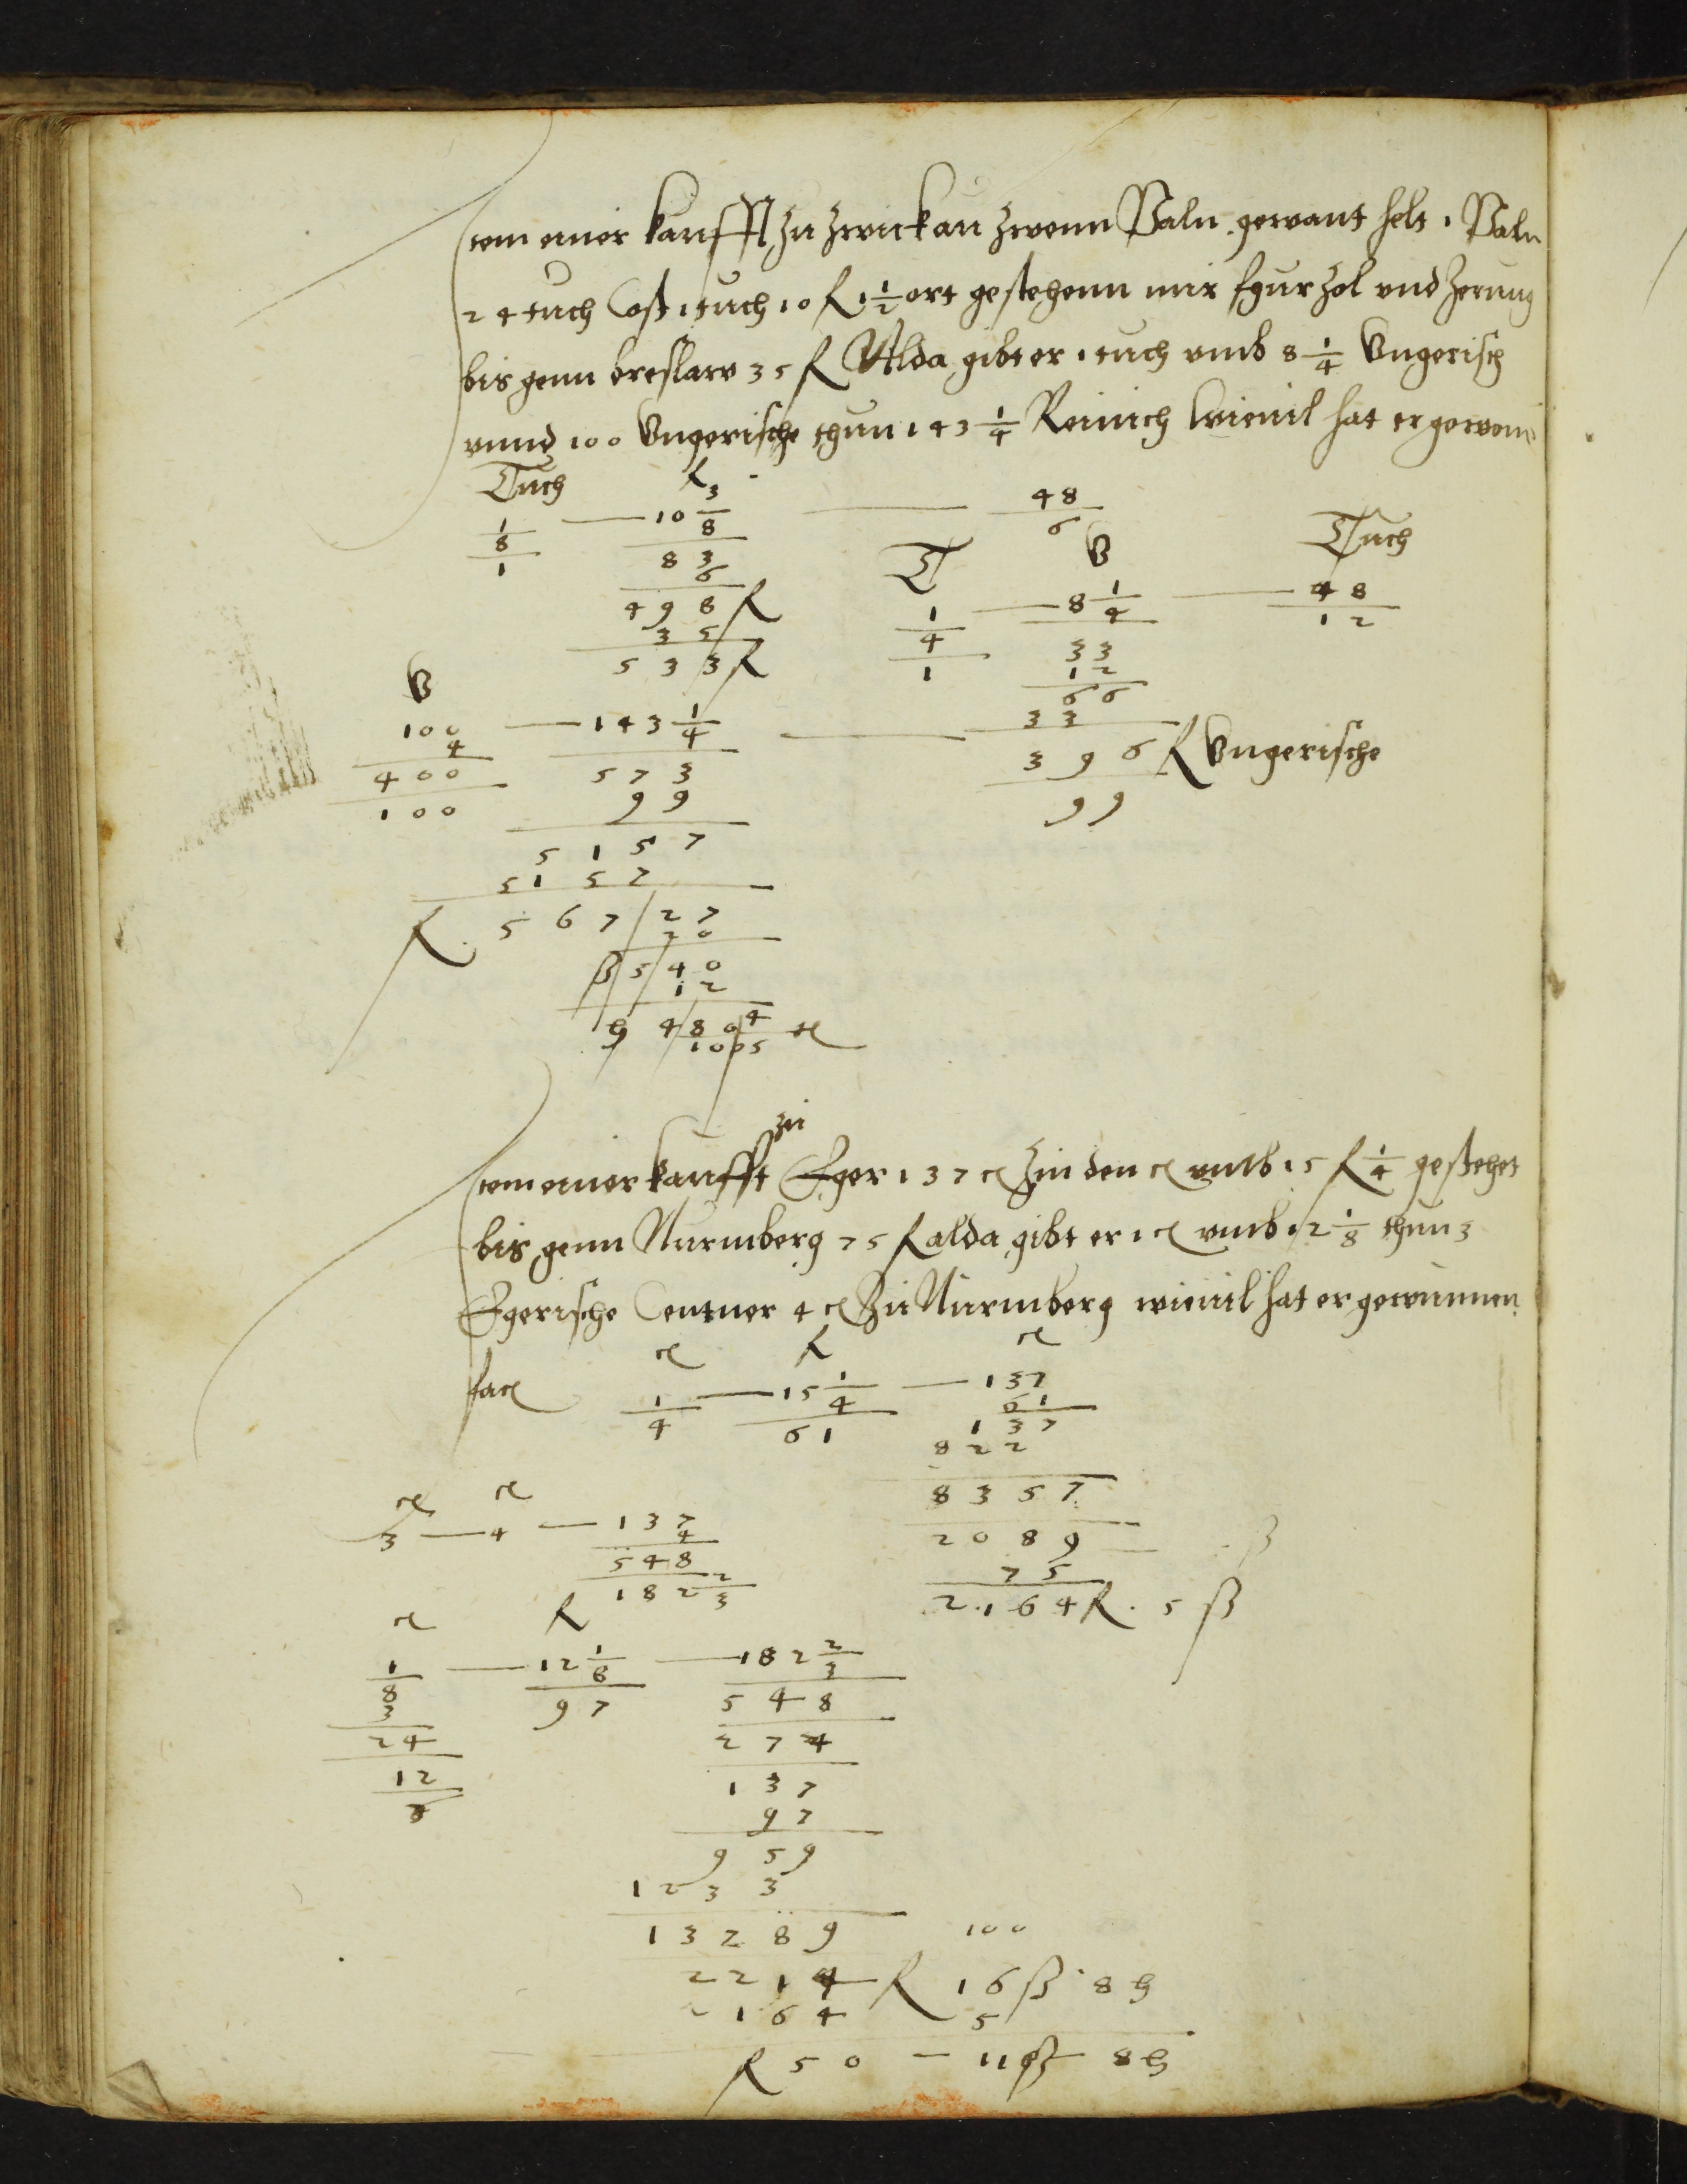 Item einer kaufft zu Zwickau zwenn Paln gewant helt 1 Paln
24 tuch Cost 1 tuch 10 fl 1 1/2 ort gestehenn mir fhur Zol vnd Zerung
bis genn breslaw 35 fl Alda gibt er 1 tuch vmb 8 1/4 Vngerisch
vnnd 100 Vngerische thun 143 1/4 Reinich wieuil hat er gewon
Tuch fl
1 — 10 3/8 — 48
8 6
1 83
6
498 fl
35
533 fl
T V Tuch
1 — 8 1/4 — 48
4 12
1 33
12
66
33
396 fl Vngerische
99
V
100 — 143 1/4
4
400 573
100 99
5157
5157
fl 567/27
20
ß 5/40
12
4/80 4/5
100
Item einer kaufft zu Eger 137 c Zin den c vmb 15 fl 1/4 gestehet
bis genn Nurmberg 75 fl alda gibt er 1 c vmb 12 1/8 thun 3
Egerische Centner 4 c zu Nurmberg wieuil hat er gewunnen
fac
c fl c
1 — 15 1/4 — 137
4 61 61
137
822
8357
2089
75
2164 fl 5 ß
c c
3 — 4 — 137
4
548
182 2/3
c fl
1 — 12 1/8 — 182 2/3
8 97 548
3 274
24 137
12 97
959
1233
13289 100
2214 fl 16 ß 8
2164 5
fl 50 — 11 ß 8